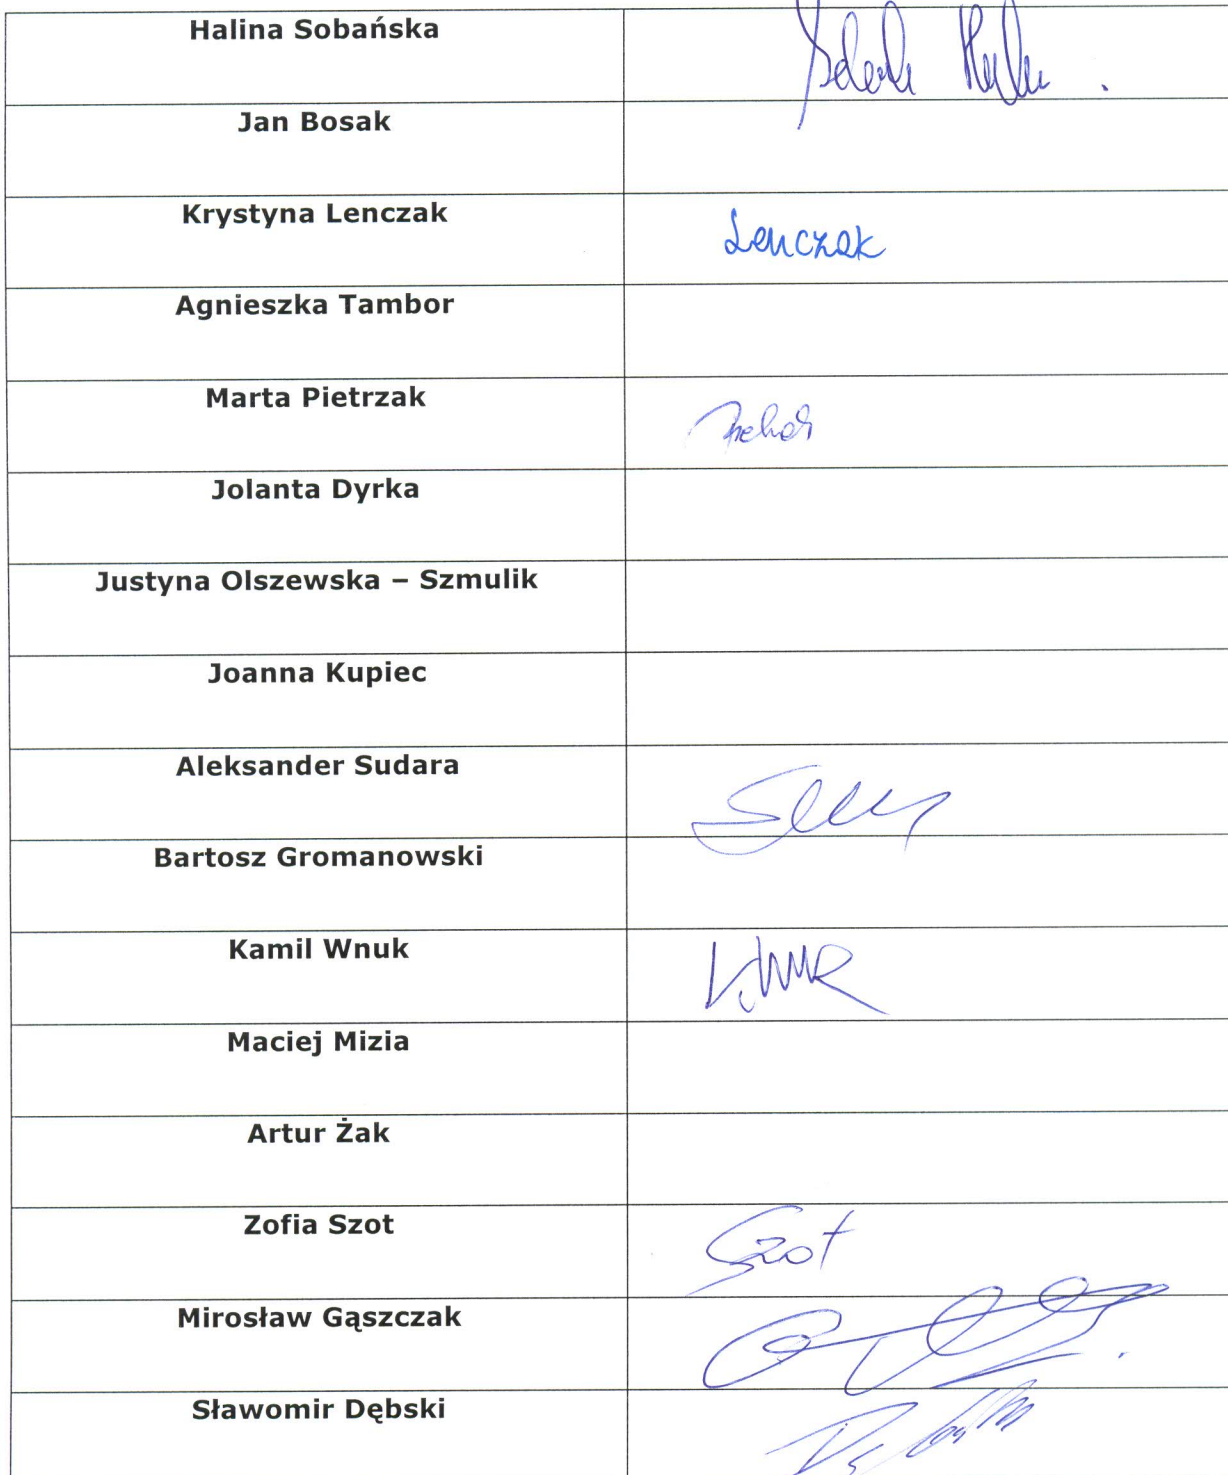 Halina Sobańska
Jan Bosak
Krystyna Lenczak Lenczak
Agnieszka Tambor
Marta Pietrzak
Jolanta Dyrka
Justyna Olszewska – Szmulik
Joanna Kupiec
Aleksander Sudara
Bartosz Gromanowski
Kamil Wnuk
Maciej Mizia
Artur Żak
Zofia Szot Szot
Mirosław Gąszczak
Sławomir Dębski